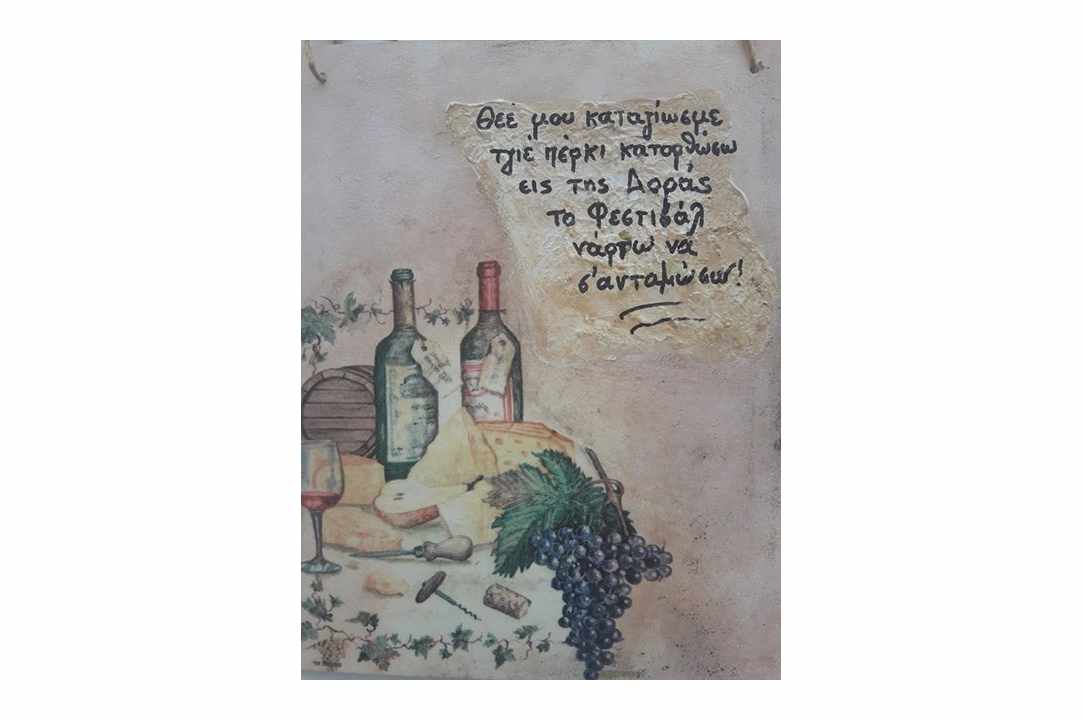 Θεέ μου καταξίωσμε
τζιέ πέρκι κατορθώσω
εις της Δοράς
το Φεστιβάλ
νάρτω νά
σ'ανταμώσω!